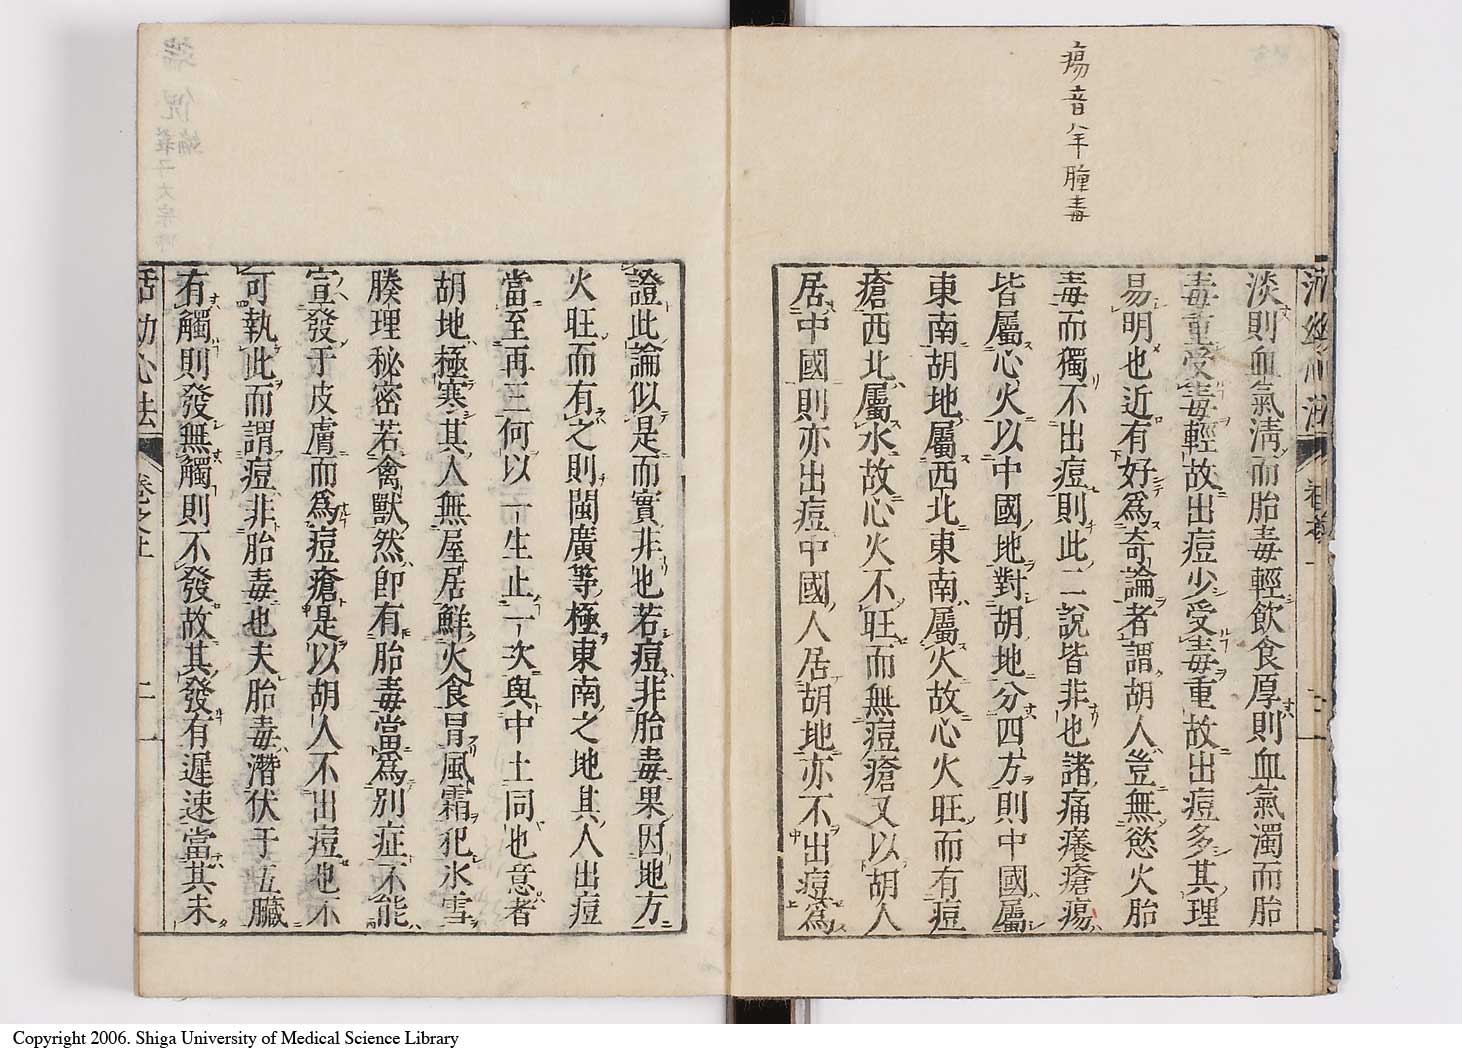 瘍音羊腫毒
淡則血氣淸而胎毒輕飲食厚則血氣濁而胎
毒重受毒輕故出痘少受毒重故出痘多其理
易明也近有好爲奇論者謂胡人豈無慾火胎
毒而獨不出痘則此二說皆非也諸痛癢瘡瘍
皆屬心火以中國地對胡地分四方則中國屬
東南胡地屬西北東南屬火故心火旺而有痘
瘡西北屬水故心火不旺而無痘瘡又以胡人
居中國則亦出痘中國人居胡地亦不出痘爲
證此論似是而實非也若痘非胎毒果因地方
火旺而有之則閩廣等極東南之地其人出痘
當至再三何以一生止一次與中土同也意者
胡地極寒其人無屋居鮮火食冐風霜犯氷雪
腠理秘密若禽獸然卽有胎毒當爲別症不能
宣發于皮膚而爲痘瘡是以胡人不出痘也不
可執此而謂痘非胎毒也夫胎毒潛伏于五臟
有觸則發無觸則不發故其發有遲速當其未
活幼心法
卷之上
二
Copyright 2006. Shiga University of Medical Science Library